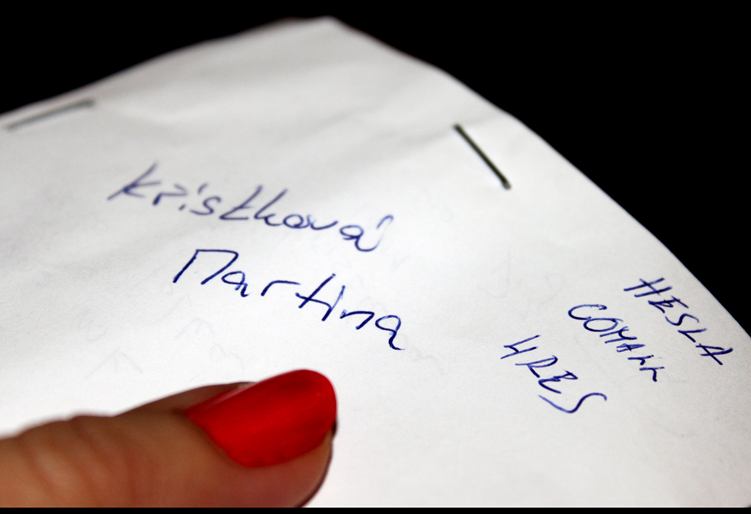 Křístková
Martina
HESLA
COMAXX
4RES